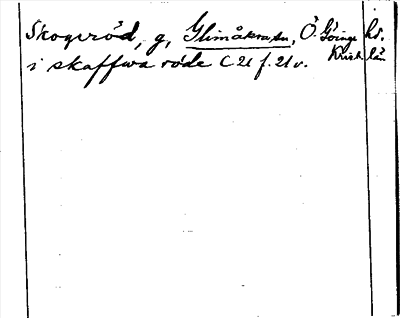 Skogsröd, g, Glimåkra sn, Ö. Göinge hd.
Krist. län
i skaffwa röde C 21 f. 21 v.